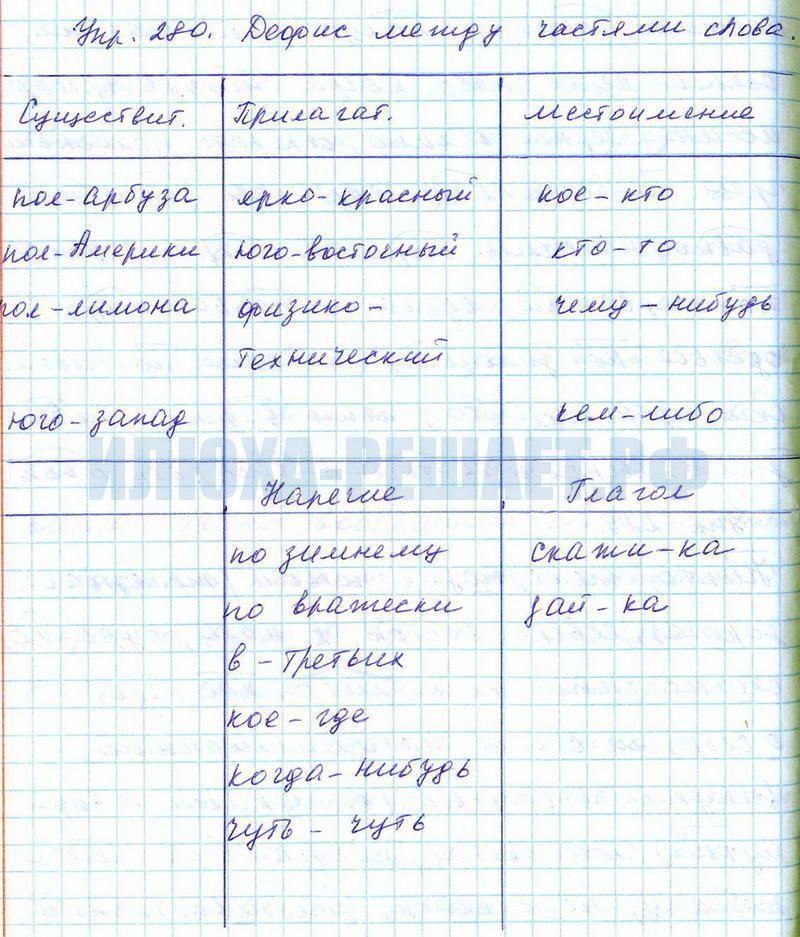 Упр. 280. Дефис между частями слова.
Существит. Прилагат. Местоимение
пол-арбуза ярко-красный кое-кто
пол-Америки юго-восточный кто-то
пол-лимона физико- чему-нибудь
технический
юго-запад кем-либо
ИЛЮХА-РЕШАЕТ.РФ
Наречие Глагол
по зимнему скажи-ка
по вражески дай-ка
в-третьих
кое-где
когда-нибудь
чуть-чуть